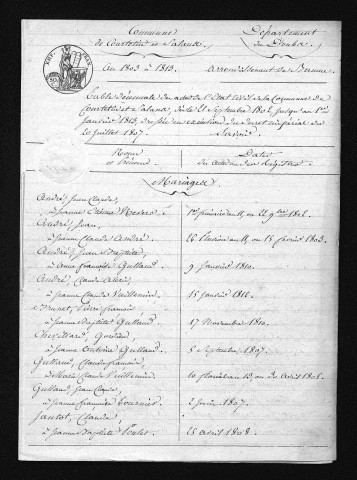 Commune
de Courtetain et Salans.
Département
du Doubs.
An 1803 à 1813.
arrondissement de Baume.
Table décennale des actes de l'Etat civil de la Commune de
Courtetain et Salans, de le 21 Septembre 1802 jusqu'au 1er
Janvier 1813, dressée en exécution du décret impérial du
20 Juillet 1807. Savoir
Noms
et Prénoms
Dates
des actes des Registres
Mariages
André, Jean Claude,
à Jeanne
André, Jean,
à Jeanne Claude André.
26 pluviose an 11, ou 15 février 1803.
André, Jean Baptiste,
à Anne Françoise Gulland.
9 Janvier 1810.
André, Claude
à Jeanne Claude Vuillemin.
15 Janvier 1812.
Brunet, Pierre François
à Jeanne Baptiste Gulland.
17 Novembre 1810.
Chevillard,
à Jeanne Gulland.
5 Septembre 1807.
Gulland, Claude François
à Marie Claude Vuillemin.
10 floréal an 13, ou 30 avril 1805.
Gulland Jean Claude
à Jeanne Françoise Tournier.
1807.
Jantot, Claude
à Jeanne Baptiste
25 avril 1808.